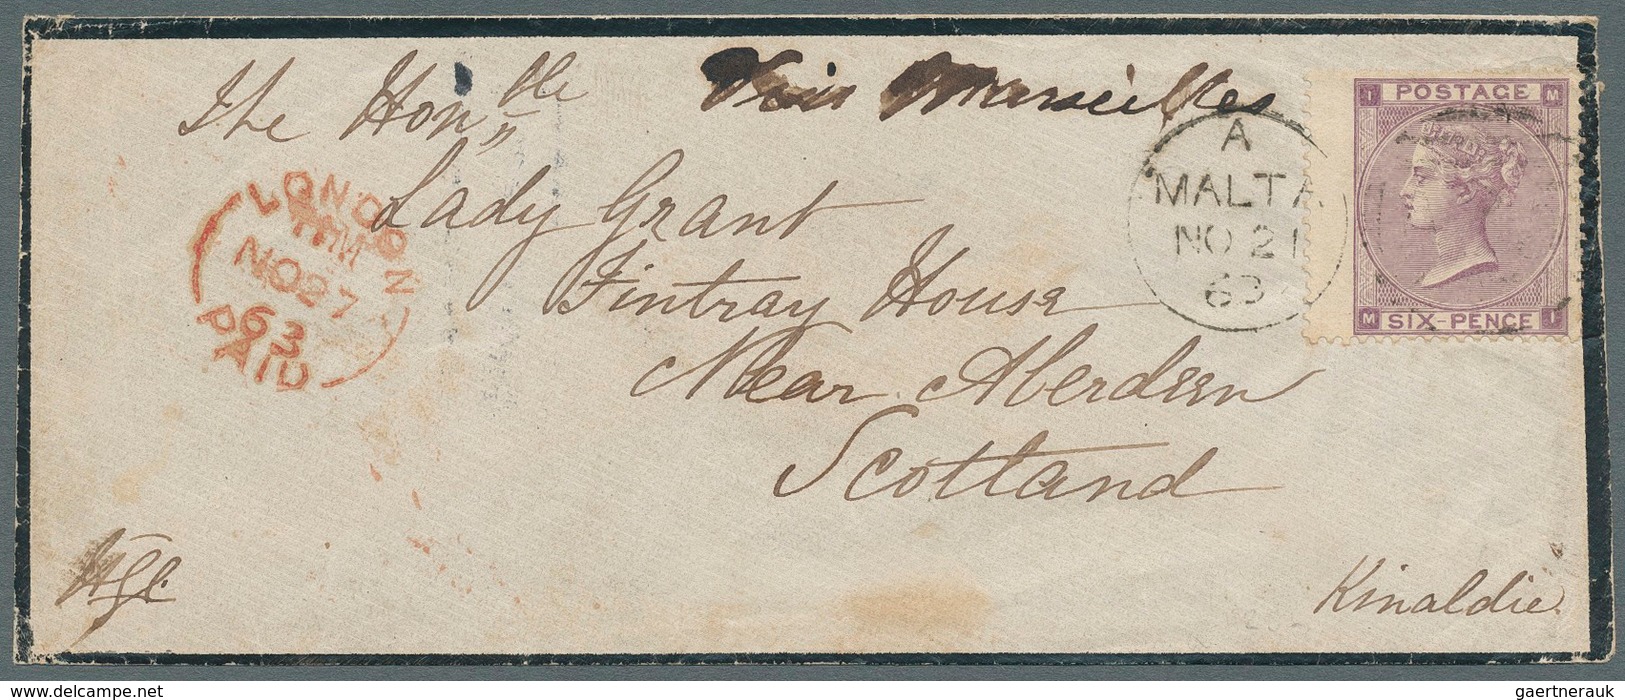 The Honble
Via Marseilles
Lady Grant
Fintray House
Near Aberdeen
Scotland
Kinaldie
LONDON
NO 27
63
PAID
A
MALTA
NO 21
63
I M
POSTAGE
SIX-PENCE
M I
delcampe.net
gaertnerauk